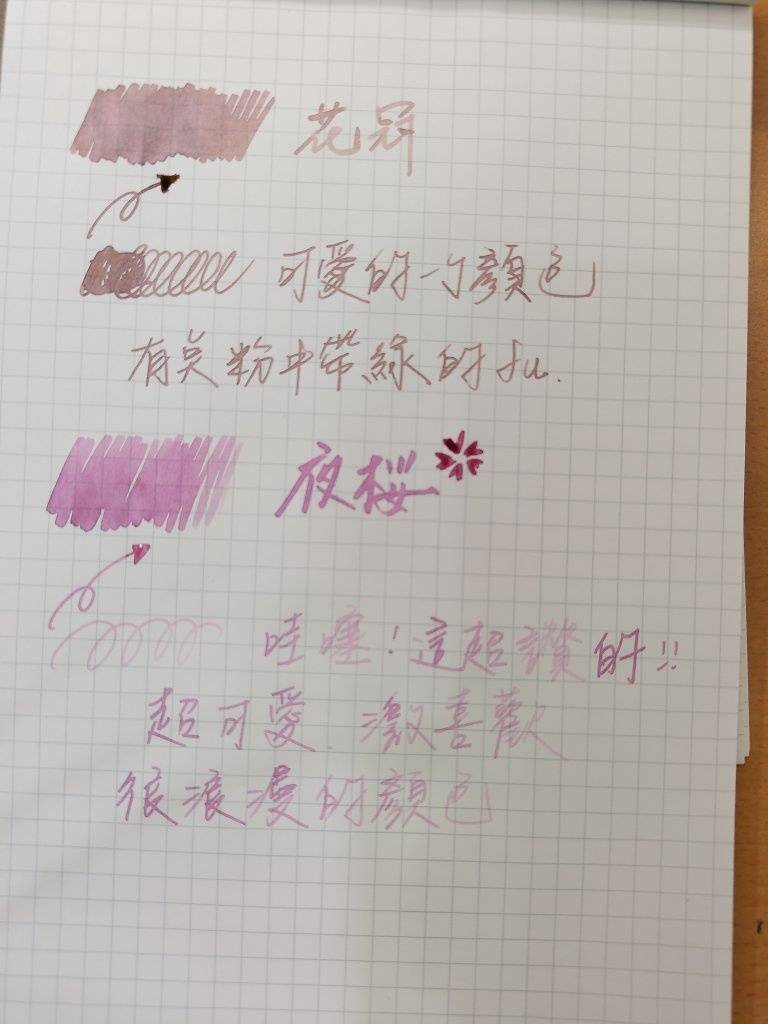 花冠
可愛的一个顏色
有点粉中帶綠的fu.
夜桜
哇噻！這超讚的!!
超可愛.激喜歡
很浪漫的顏色